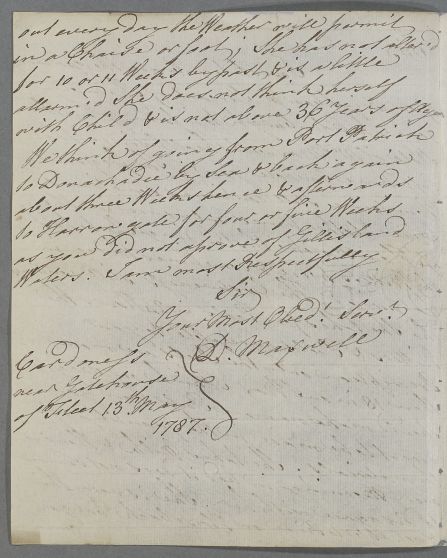 out every day the Weather will permit
in a Chaise or foot, She has not alter'd
for 10 or 11 Weeks by past & is a little
allarm'd She does not think herself
with Child & is not above 36 Years of Age
We think of going from Port Patrick
to Donachadie by Sea & back again
about three Weeks hence & afterwards
to Harrowgate for four or five Weeks
as you did not aprove of Gillsland
Waters. I am most Respectfully
Sir
Your Most Obed.t Serv.t
D. Maxwell
Cardoness
near Gatehouse
of Fleet 13th May
1787.